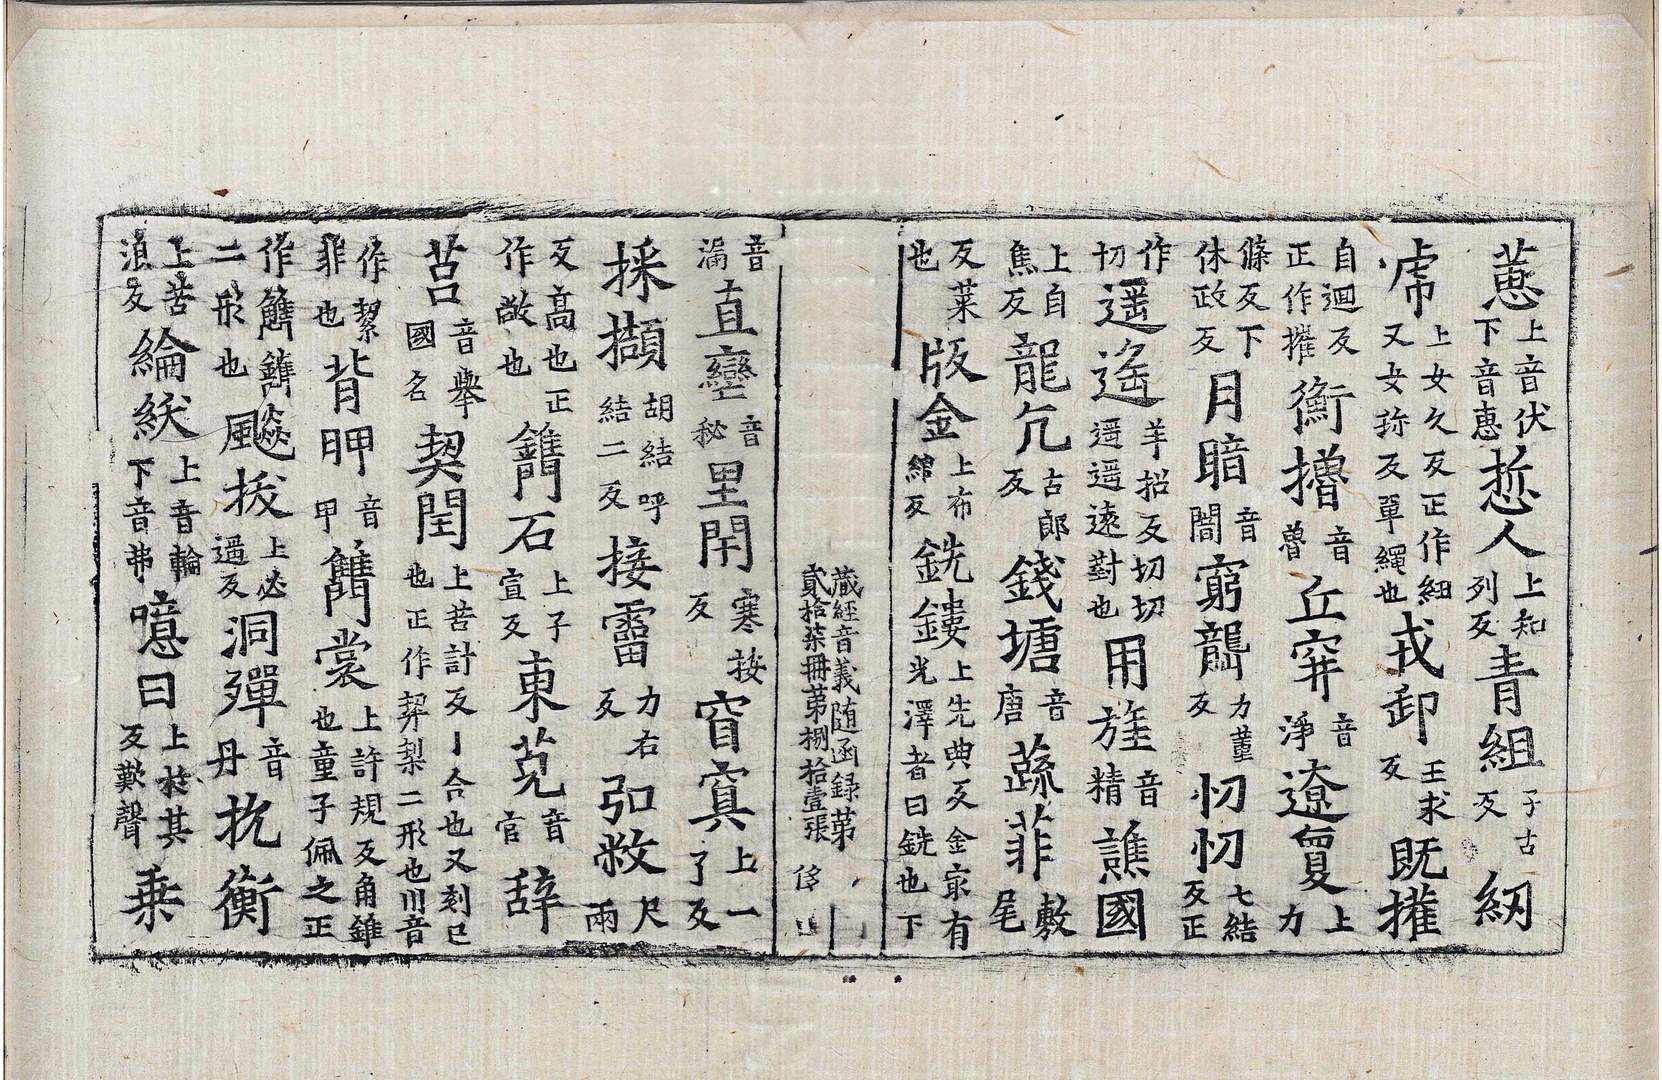 蒠上音伏下音惠悊人上知列反青組子古反紉
虏上女久反正作紐又女珎反單繩也戎卸王求反既摧
自迴反正作摧衡櫓音魯丘穽音淨遼敻上力
條反下休政反月暗音闇窮豅力董反忉忉七結反正
作切遥遥羊招反切切遥遥遠對也用旌音精譙國
上自焦反龍亢古郎反錢塘音唐蔬菲敷尾
反菜也版金上布綰反銑鏤上先典反金㝡有光澤者曰銑也下
藏經音義随函録第貳拾柒冊第捌拾壹張
音漏直巒音秘里閈寒按反窅㝠上一了反
採擷胡結呼結二反接霤力右反弘敞尺兩
反高也正作敞也鐫石上子宣反東莞音官辞
莒音舉國名契閏上苦計反丨合也又刻也正作挈栔二形也川音
作絜非也背胛音甲觿裳上許規反角錐也童子佩之正
作觹鐫二形也飈拔上必遥反洞彈音丹抗衡
上苦浪反綸紱上音輪下音弗噫曰上於其反歎聲乗